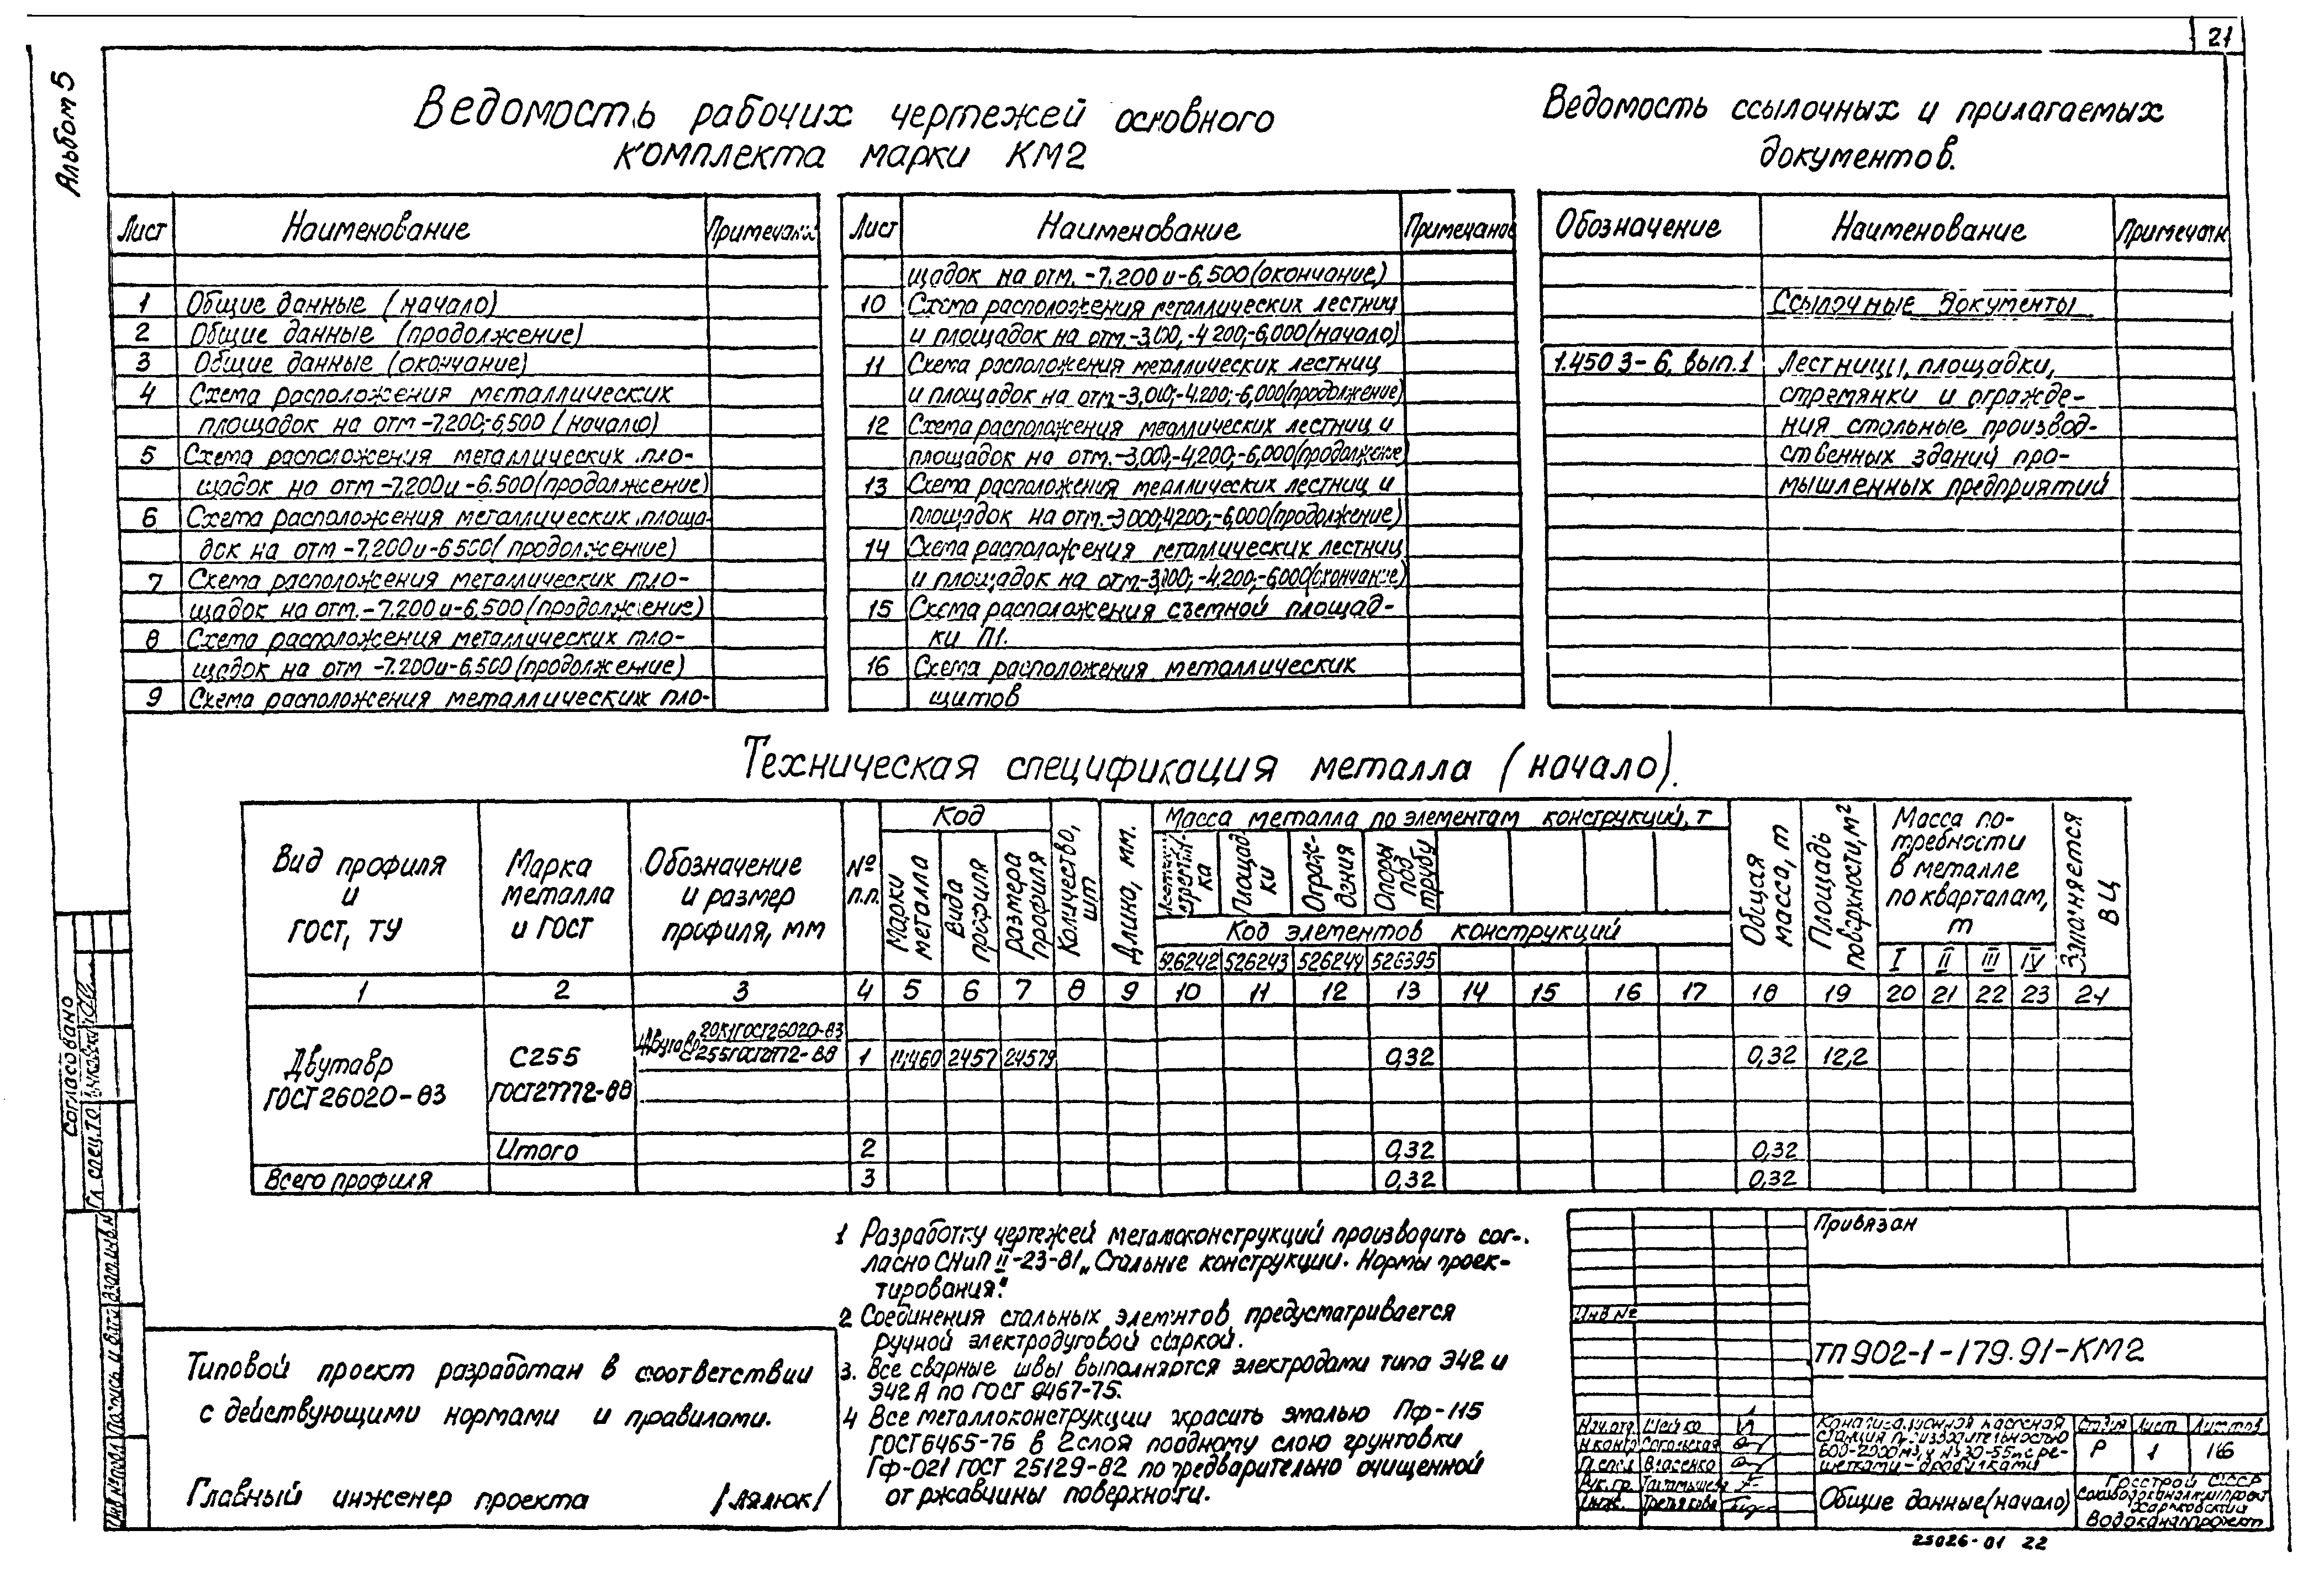 21
Альбом 5
Ведомость рабочих чертежей основного
комплекта марки КМ2
Лист Наименование Примечание
1 Общие данные (начало)
2 Общие данные (продолжение)
3 Общие данные (окончание)
4 Схема расположения металлических
площадок на отм -7,200;-6,500 (начало)
5 Схема расположения металлических пло-
щадок на отм -7.200 и -6.500 (продолжение)
6 Схема расположения металлических площа-
док на отм -7,200 и -6 500 (продолжение)
7 Схема расположения металлических пло-
щадок на отм. -7.200 и -6,500 (продолжение)
8 Схема расположения металлических пло-
щадок на отм -7.200 и -6,500 (продолжение)
9 Схема расположения металлических пло-
Лист Наименование Примечание
щадок на отм. -7.200 и -6,500 (окончание)
10 Схема расположения металлических лестниц
и площадок на отм.-3,000,-4 200;-6,000 (начало)
11 Схема расположения металлических лестниц
и площадок на отм.-3,000;-4.200;-6,000 (продолжение)
12 Схема расположения металлических лестниц и
площадок на отм.-3,000;-4,200;-6,000 (продолжение)
13 Схема расположения металлических лестниц и
площадок на отм.-3 000;4200;-6,000 (продолжение)
14 Схема расположения металлических лестниц
и площадок на отм-3,000;-4.200;-6,000 (окончание)
15 Схема расположения съемной площад-
ки П1.
16 Схема расположения металлических
щитов
Ведомость ссылочных и прилагаемых
документов.
Обозначение Наименование Примечан
Ссылочные документы
1.450 3-6, вып.1 Лестницы, площадки,
стремянки и огражде-
ния стальные производ-
ственных зданий про-
мышленных предприятий
Техническая спецификация металла (начало).
Вид профиля
и
ГОСТ, ТУ
Марка
металла
и ГОСТ
Обозначение
и размер
профиля, мм
№
п.п.
Код
Марки
металла
Вида
профиля
Размера
профиля
Количество,
шт
Длина, мм.
Масса металла по элементам конструкций, т
Площад
ки
Ограж-
дения
Опоры
под
трубу
Код элементов конструкций
526242 526243 526244 526395
Общая
масса, т
Площадь
поверхности, м²
Масса по-
требности
в металле
по кварталам,
т
I II III IV
Заполняется
ВЦ
1 2 3 4 5 6 7 8 9 10 11 12 13 14 15 16 17 18 19 20 21 22 23 24
Двутавр
ГОСТ 26020-83
С255
ГОСТ27772-88
Двутавр 20К1ГОСТ26020-83
С255ГОСТ27772-88
1 2457 24579 0,32 0,32 12,2
Итого 2 0,32 0,32
Всего профиля 3 0,32 0,32
1 Разработку чертежей металлоконструкций производить сог-
ласно СНиП II-23-81 „Стальные конструкции. Нормы проек-
тирования."
2 Соединения стальных элементов предусматривается
ручной электродуговой сваркой.
3. Все сварные швы выполняются электродами типа Э42 и
Э42А по ГОСТ 9467-75.
4 Все металлоконструкции красить эмалью Пф-115
ГОСТ 6465-76 в 2 слоя по одному слою грунтовки
Гф-021 ГОСТ 25129-82 по предварительно очищенной
от ржавчины поверхности.
Типовой проект разработан в соответствии
с действующими нормами и правилами.
Главный инженер проекта /Лялюк/
Согласовано
Гл. спец. ТО
Инв № подл Подпись и дата Взам. инв. №
Привязан
Инв №
ТП 902-1-179.91-КМ2
Нач. отд. Шейко
Н контр Согольская
Гл. спец. Власенко
Рук. гр.
Инж. Третьякова
Канализационная насосная
станция производительностью
решетками-дробилками
Стадия Лист Листов
Р 1 16
Общие данные (начало)
Госстрой СССР
Союзводоканалниипроект
Харьковский
Водоканалпроект
25026-01 22